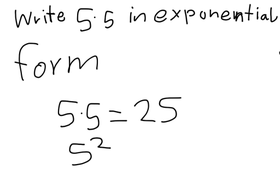 Write 5·5 in exponential
form
5·5=25
5²